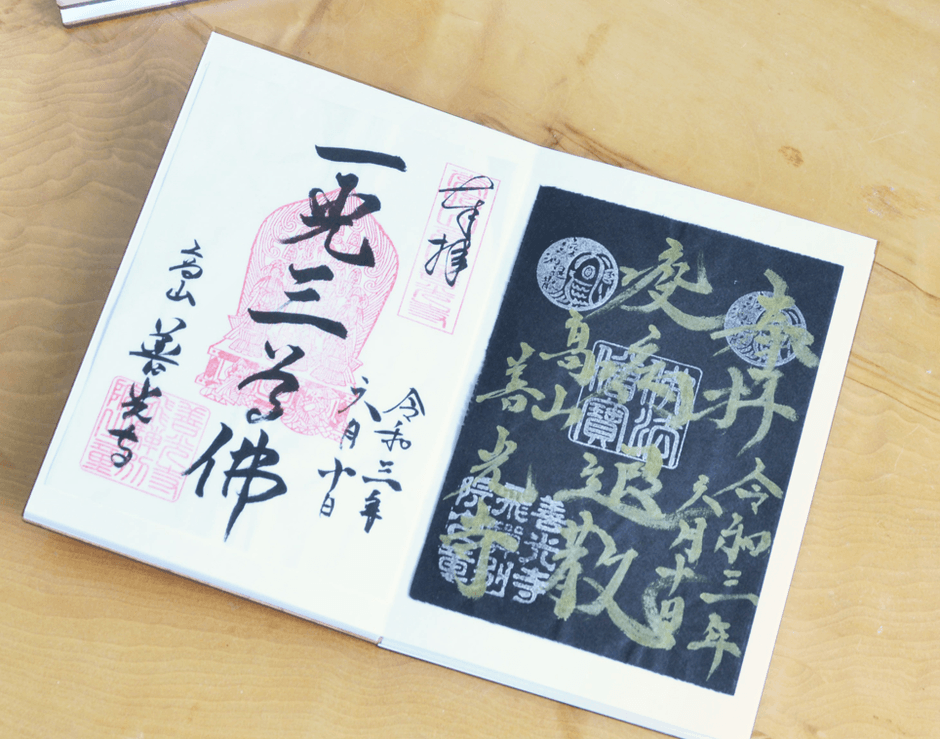 奉拝
令和三年
六月十日
疫病退散
高山
善光寺
善光寺
飛騨別
奉拝
令和三年
六月十日
一光三尊佛
高山 善光寺